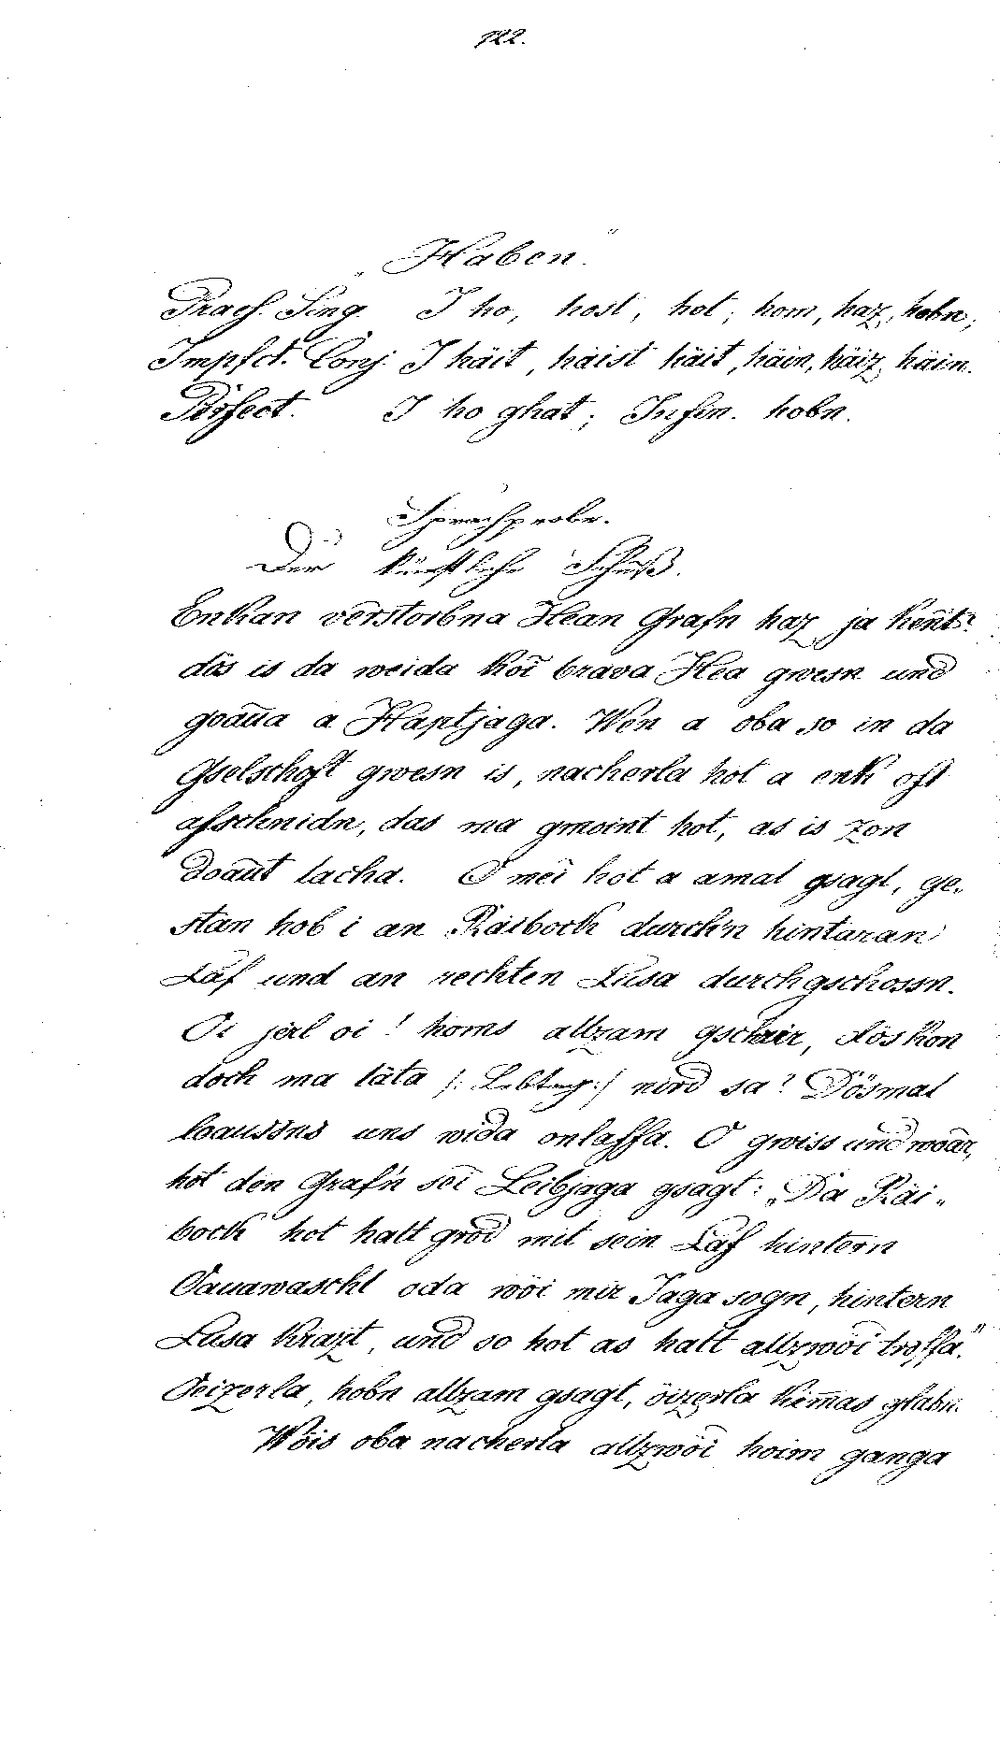 122.
„Haben“.
Praes. Sing. I ho, host, hot; hom, haz, hobn;
Impfct. Conj. I häit, häist häit, häin, häiz, häin.
Perfect. I ho ghat; Infin. hobn.
Sprachprobe.
Der künstliche Schuß.
Enkan verstorbna Hean Grafn haz ja kent?
dös is da weida koi brava Hea gwesn und
goaua a Haptjaga. Wen a oba so in da
Gselschoft gwesn is, nacherla hot a enk oft
afschnidn, das ma gmoint hot, as is zon
doaut lacha. O mei hot a amal gsagt, ge-
stan hob i an Räibock durch'n hintaran
Läf und an rechten Lusa durchgschossn.
Oi jerl oi! homs allzam gschrir, dös kon
doch ma läta /: Lebtag :/ nird sa? Dösmal
loaussns uns wida onlaffa. O gwiss und woar,
hot den Graf'n sei Leibjaga gsagt: „Da Räi-
bock hot halt grod mit sein Läf hintern
Oauawaschl oda wöi mir Jaga sogn, hintern
Lusa krazt, und so hot as halt allzwöi troffa.“
Oeizerla, hobn allzam gsagt, öizerla kimas glabn.
Wöis oba nacherla allzwöi hoim ganga